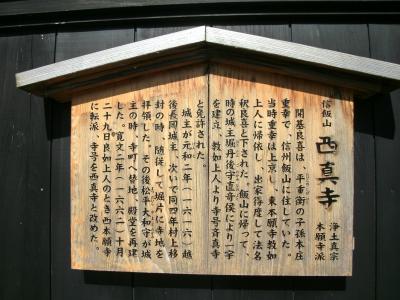 信飯山
西真寺
浄土真宗
本願寺派
開基良喜は、平重衡の子孫本庄
重幸で、信州飯山に住していた。
当時重幸は上京し、東本願寺教如
上人に帰依し、出家得度して法名
釈良喜と下された。飯山に帰って、
時の城主堀丹後守直寄侯により一宇
を建立、教如上人より寺号斉真寺
と免許された。
城主が元和二年(一六一六)越
後長岡城主、次いで同四年村上移
封の時、随従して堀片に寺地を
拝領した。その後松平大和守が城
主の時、寺町へ替地、殿堂を再建
した。寛文二年(一六六二)十月
二十九日良如上人のとき西本願寺
に転派、寺号を西真寺と改めた。